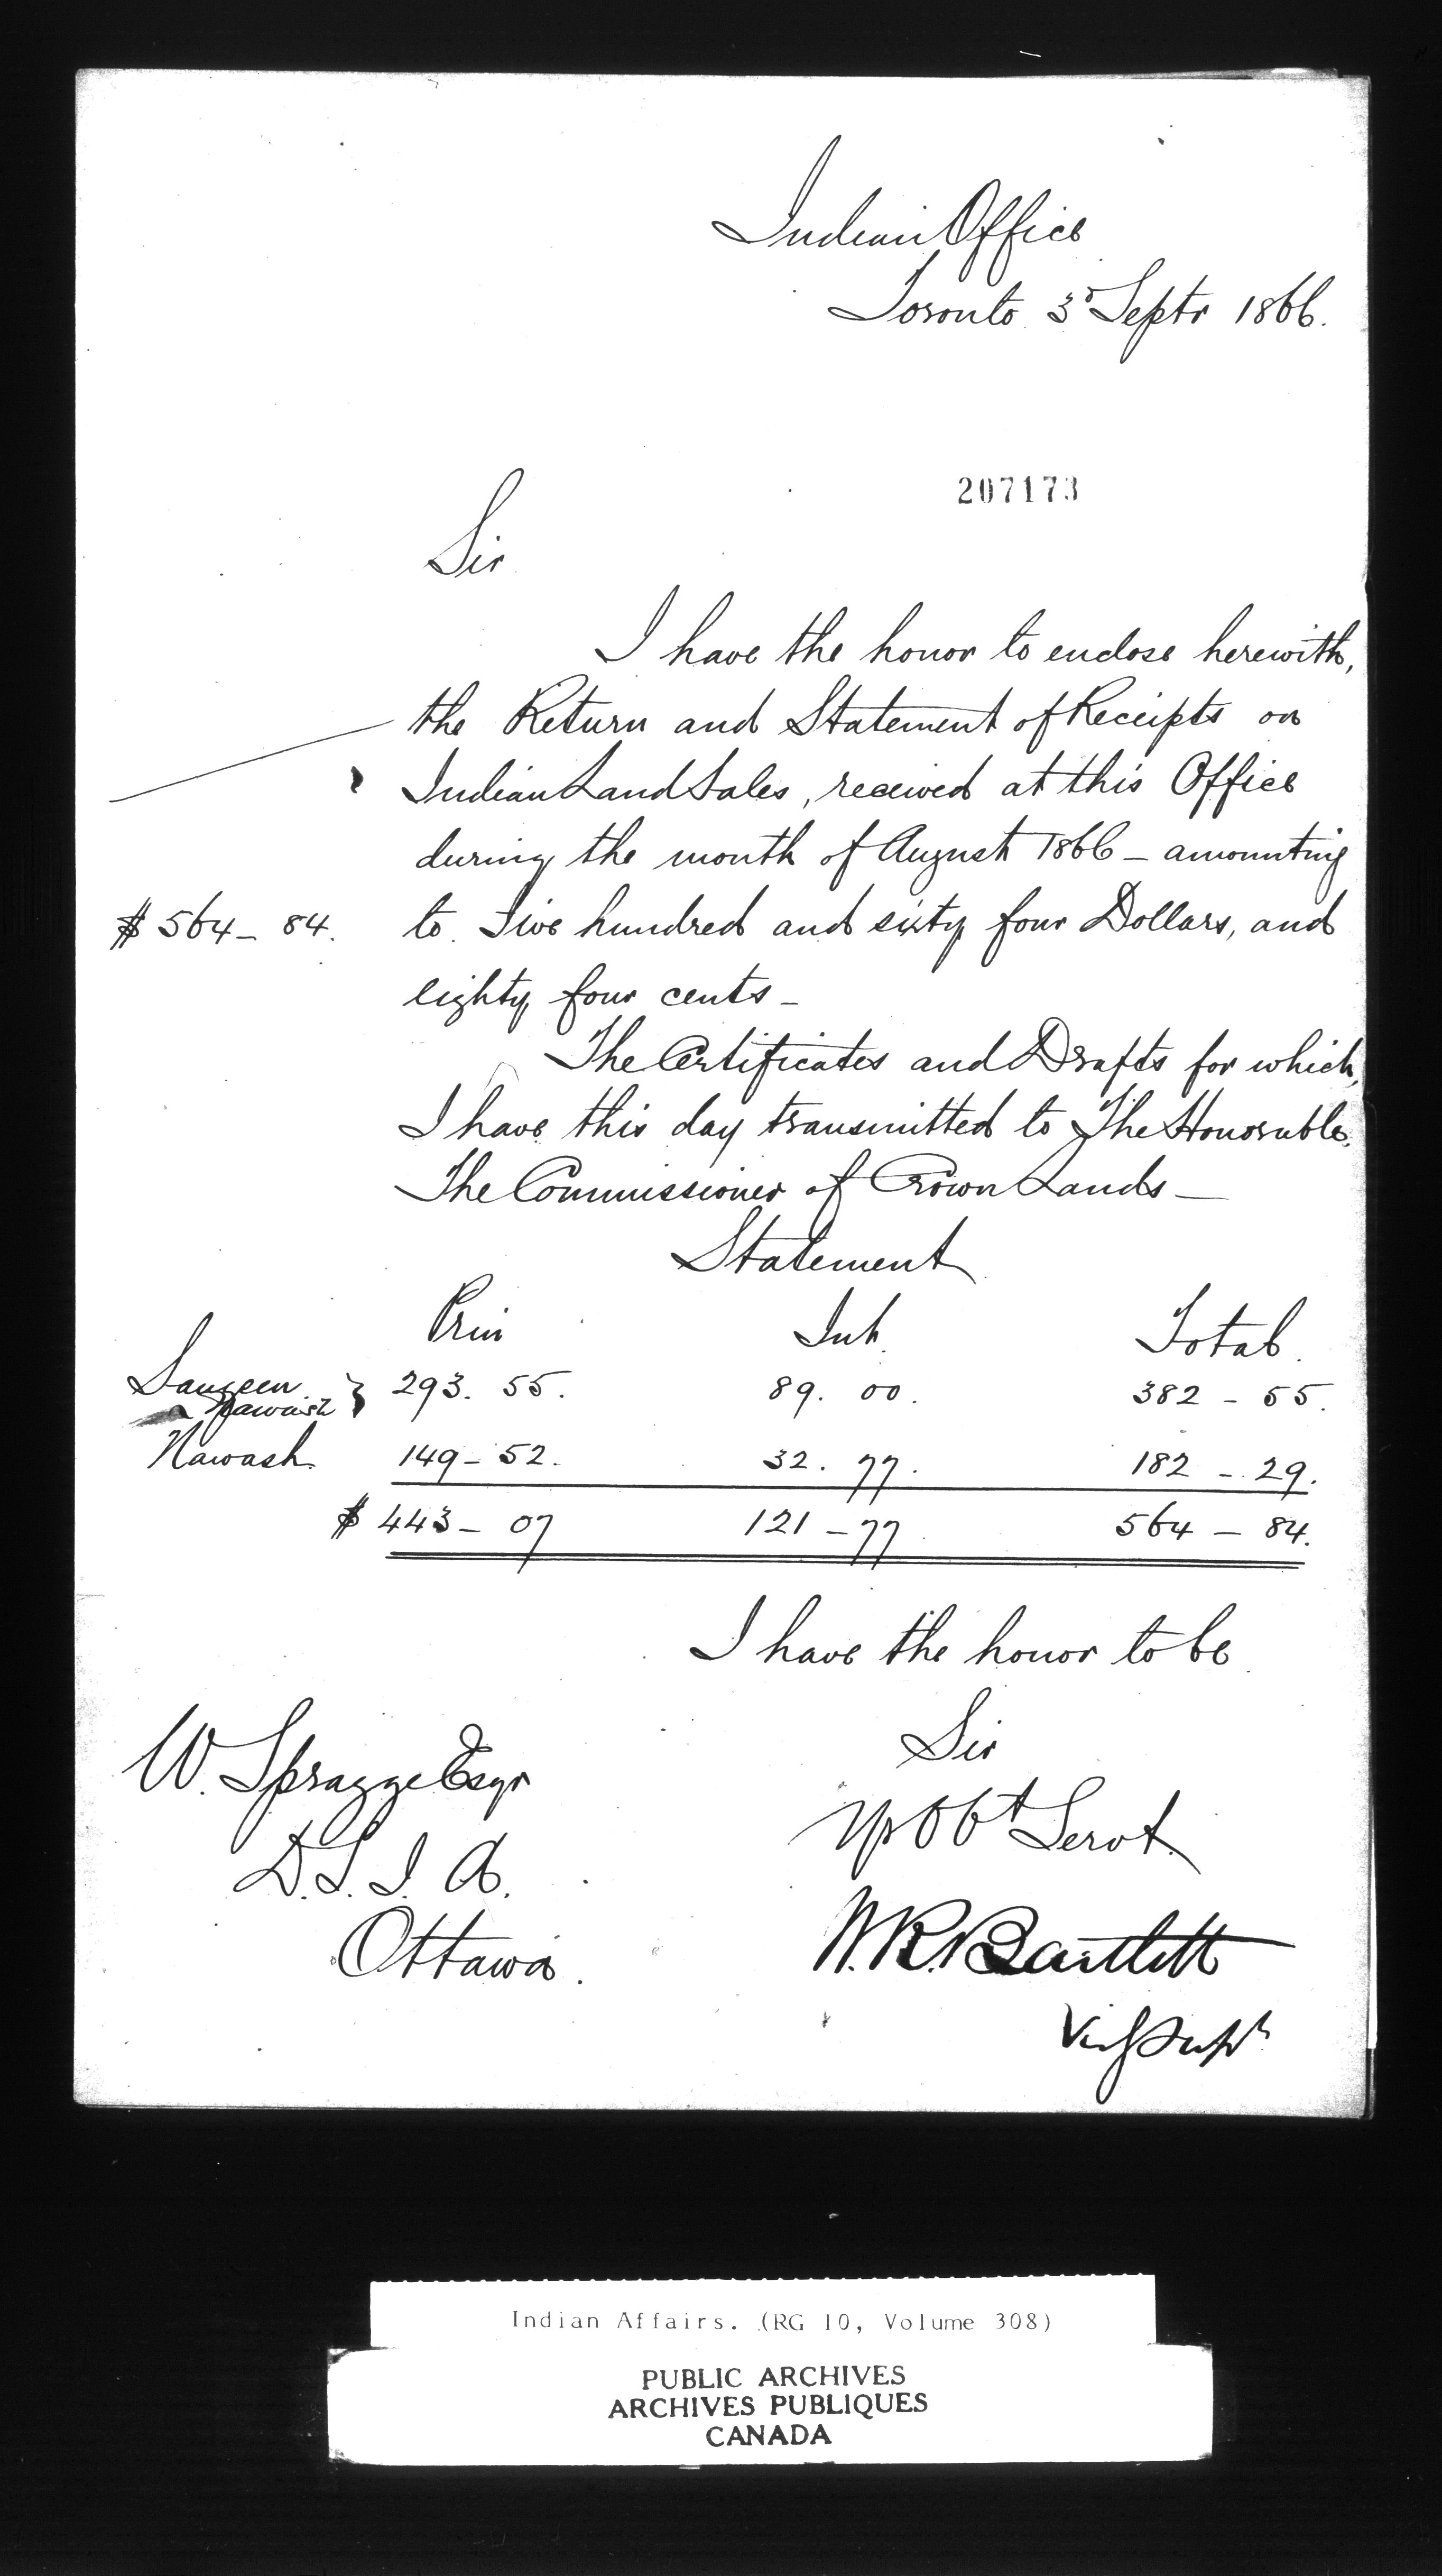 Indian Office
Toronto 3d Septr 1866.
207173
Sir
I have the honor to enclose herewith,
the Return and Statement of Receipts on
Indian Land Sales, received at this Office
during the month of August 1866 – amounting
$ 564 – 84. to Five hundred and sixty four Dollars, and
eighty four cents –
The Certificates and Drafts for which,
I have this day transmitted to The Honorable
The Commissioner of Crown Lands –
Statement
Prin Int. Total.
Saugeen } 293. 55. 89. 00. 382 – 55.
Nawash
Nawash 149 – 52. 32. 77. 182 – 29.
$ 443 – 07 121 – 77 564 – 84.
I have the honor to be
Sir
Yr Obt Servt
W. R. Bartlett
V. Supt
W. Spragge Esqr
D. S. I. A.
Ottawa.
Indian Affairs. (RG 10, Volume 308)
PUBLIC ARCHIVES
ARCHIVES PUBLIQUES
CANADA